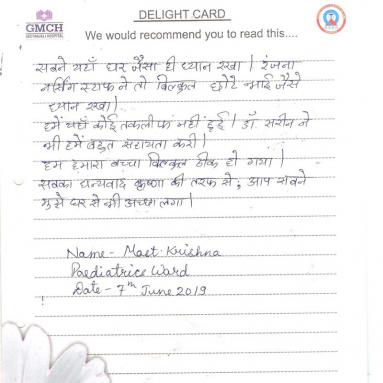 GMCH
GEETANJALI HOSPITAL
DELIGHT CARD
We would recommend you to read this....
सबने यहाँ घर जैसा ही ध्यान रखा। रंजना
नर्सिंग स्टाफ ने तो बिल्कुल छोटे भाई जैसे
ध्यान रखा।
हमें यहाँ कोई तकलीफ नहीं हुई। डॉ. सरीन ने
भी हमें बहुत सहायता करी।
हम हमारा बच्चा बिल्कुल ठीक हो गया।
सबका धन्यवाद कृष्णा की तरफ से, आप सबने
मुझे घर से भी अच्छा लगा।
Name- Mast. Krishna
Paediatrics Ward
Date - 7th June 2019